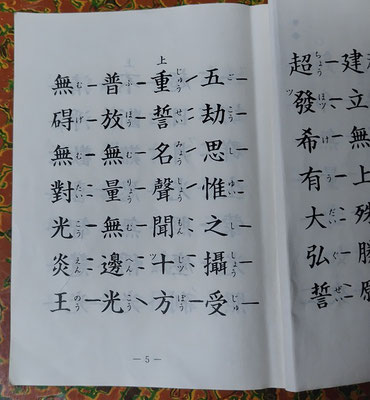 建立無上殊勝願
超發希有大弘誓
ちょう ホツ け う だい ぐ せい
五劫思惟之攝受
ご こう し ゆい し しょう じゅ
上
重誓名聲聞十方
じゅう せい みょう しょう もん じツ ぽう
普放無量無邊光
ふ ほう む りょう む へん こう
無碍無對光炎王
む げ む たい こう えん のう
— 5 —